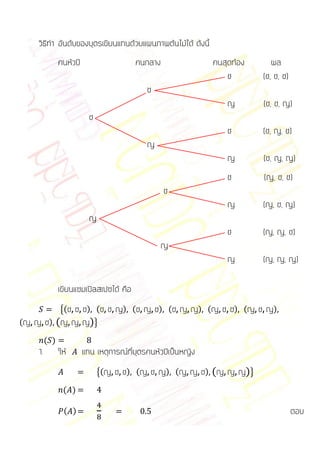 วิธีทำ อันดับของบุตรเขียนแทนด้วยแผนภาพต้นไม้ได้ ดังนี้
คนหัวปี คนกลาง คนสุดท้อง ผล
ช (ช, ช, ช)
ช
ญ (ช, ช, ญ)
ช
ช (ช, ญ, ช)
ญ
ญ (ช, ญ, ญ)
ช (ญ, ช, ช)
ช
ญ (ญ, ช, ญ)
ญ
ช (ญ, ญ, ช)
ญ
ญ (ญ, ญ, ญ)
เขียนแซมเปิลสเปซได้ คือ
S = {(ช, ช, ช), (ช, ช, ญ), (ช, ญ, ช), (ช, ญ, ญ), (ญ, ช, ช), (ญ, ช, ญ),
(ญ, ญ, ช), (ญ, ญ, ญ)}
n(S) = 8
1. ให้ A แทน เหตุการณ์ที่บุตรคนหัวปีเป็นหญิง
A = {(ญ, ช, ช), (ญ, ช, ญ), (ญ, ญ, ช), (ญ, ญ, ญ)}
n(A) = 4
P(A) = 4/8 = 0.5 ตอบ